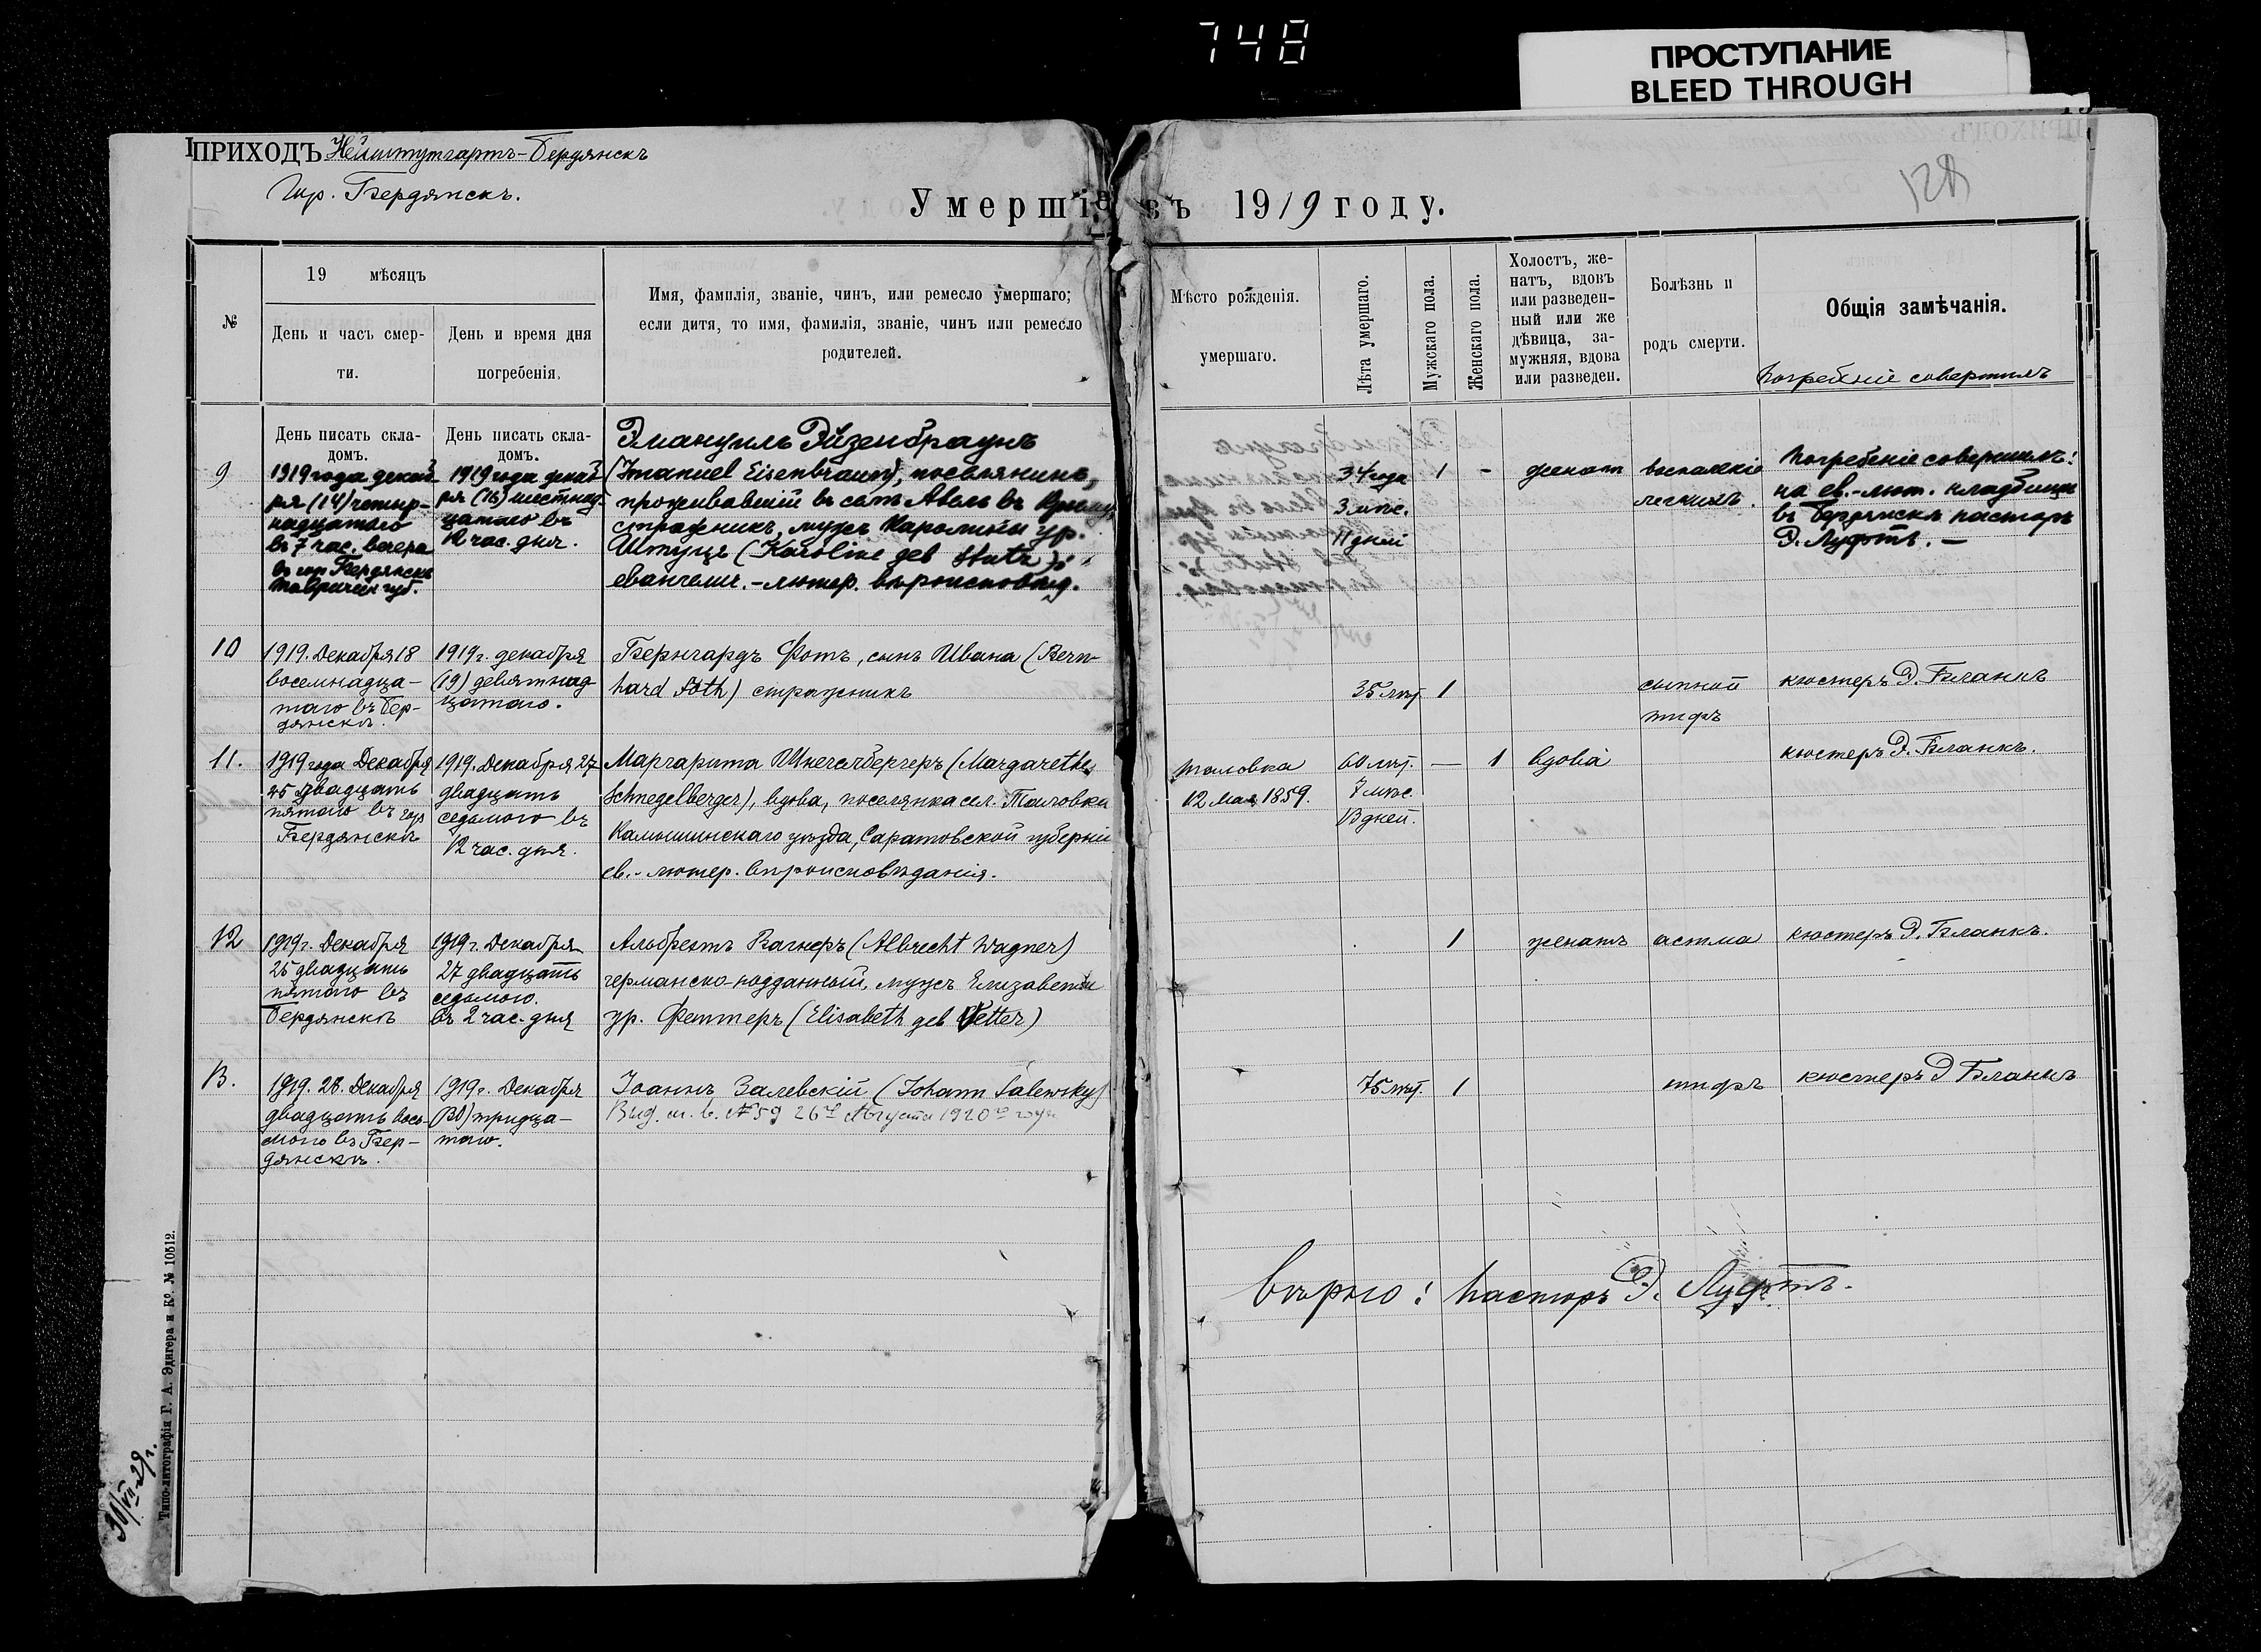 748
ПРОСТУПАНИЕ
BLEED THROUGH
ПРИХОДЪ Нейштутгартъ-Бердянскъ
Гор. Бердянскъ.
Умершіе въ 1919 году.
№
19 мѣсяцъ
День и часъ смер-
ти.
День и время дня
погребенія.
Имя, фамилія, званіе, чинъ, или ремесло умершаго;
если дитя, то имя, фамилія, званіе, чинъ или ремесло
родителей.
Мѣсто рожденія.
умершаго.
Лѣта умершаго.
Мужскаго пола.
Женскаго пола.
Холостъ, же-
натъ, вдовъ
или разведен-
ный или же
дѣвица, за-
мужняя, вдова
или разведен.
Болѣзнь и
родъ смерти.
Общія замѣчанія.
Погребеніе совершилъ
День писать скла-
домъ.
День писать скла-
домъ.
9
1919 года декаб
ря (14) четыр-
надцатаго
въ 7 час. вечера
въ гор. Бердянскѣ
Таврич. губ.
1919 года декаб
ря (16) шестнад-
цатаго въ
12 час. дня.
Эмануилъ Эйзенбраунъ
(Imanuel Eisenbraun), поселянинъ,
проживавшій въ сел. Абель въ Крыму,
стражникъ, мужъ Каролины ур.
Штуцъ (Karoline geb Stutz);
евангелич.-лютер. вѣроисповѣд.
34 года
3 мѣс.
11 дней
1
-
женат
воспаленіе
легкихъ.
Погребеніе совершилъ:
на ев.-лют. кладбищѣ
въ Бердянскѣ пасторъ
Э. Луфтъ. —
10
1919. Декабря 18
восемнадца-
таго въ Бер-
дянскѣ.
1919 г. декабря
(19) девятнад
цатаго.
Бернгардъ Фотъ, сынъ Ивана (Bern-
hard Foth) стражникъ
35 лѣт.
1
сыпной
тифъ
кюстеръ Э. Бланкъ
11.
1919 года Декабря
25 двадцать
пятаго въ гор
Бердянскѣ
1919. Декабря 27
двадцать
седьмого въ
12 час. дня.
Маргарита Шнегелбергеръ (Margarethe
Schnegelberger), вдова, поселянка сел. Таловка
Камышинскаго уѣзда, Саратовской губерніи
ев.-лютер. вѣроисповѣданія.
Таловка
12 Мая 1859.
60 лѣт.
7 мѣс.
13 дней.
—
1
вдова
кюстеръ Э. Бланкъ.
12
1919 г. Декабря
25 двадцать
пятаго въ
Бердянскѣ
1919 г. Декабря
27 двадцать
седьмого.
въ 2 час. дня
Альбрехтъ Вагнеръ (Albrecht Wagner)
германско-подданный, мужъ Елизаветы
ур. Феттеръ (Elisabeth geb Vetter)
1
женатъ
астма
кюстеръ Э. Бланкъ.
13.
1919. 28. Декабря
двадцать вось-
мого въ Бер-
дянскѣ.
1919 г. Декабря
(30) тридца-
таго.
Іоаннъ Залевскій (Johann Salewsky)
Выд. м. в. №59 26го Августа 1920го года
75 лѣт.
1
тифъ
кюстеръ Э Бланкъ
Вѣрно: Пасторъ Э. Луфтъ.
Типо-литографія Г. А. Эдигера и Кº. № 10512.
30/VII-29 г.